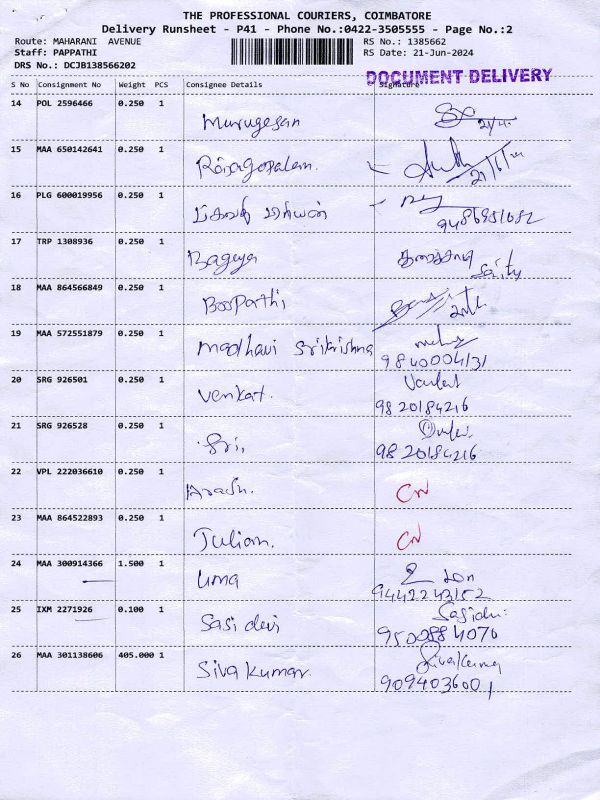 THE PROFESSIONAL COURIERS, COIMBATORE
Delivery Runsheet - P41 - Phone No.:0422-3505555 - Page No.:2
Route: MAHARANI AVENUE
RS No.: 1385662
Staff: PAPPATHI
RS Date: 21-Jun-2024
DRS No.: DCJB138566202
DOCUMENT DELIVERY
S No Consignment No Weight PCS Consignee Details Signature
14 POL 2596466 0.250 1 Murugesan
15 MAA 650142641 0.250 1 Rajagopalan.
21/6/24
16 PLG 600019956 0.250 1
17 TRP 1308936 0.250 1 Bagya
Saity
18 MAA 864566849 0.250 1 Booparthi
19 MAA 572551879 0.250 1 Madhavi Srikrishna
9840004131
20 SRG 926501 0.250 1 Venkat. Venkat
9820184216
21 SRG 926528 0.250 1 Sri,
9820184216
22 VPL 222036610 0.250 1 CN
23 MAA 864522893 0.250 1 Julian. CN
24 MAA 300914366 1.500 1 Uma
9442243152
25 IXM 2271926 0.100 1 Sasi devi Sasidevi
9500884076
26 MAA 301138606 405.000 1 Siva Kumar. Sivakumar
9094036001